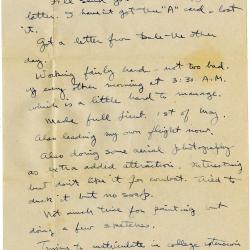 letter. I haven't got the "A" card - lost
it.
Got a letter from Dale the other
day.
Working fairly hard - not too bad.
every other morning at 3:30 A.M.
which is a little hard to manage.
Made full Lieut. 1st of May.
Also leading my own flight now.
Also doing some aerial photography
as extra added attraction. Interesting
but don't like it for combat. Tried to
duck it but no soap.
Not much time for painting but
doing a few sketches.
Trying to matriculate in college extension